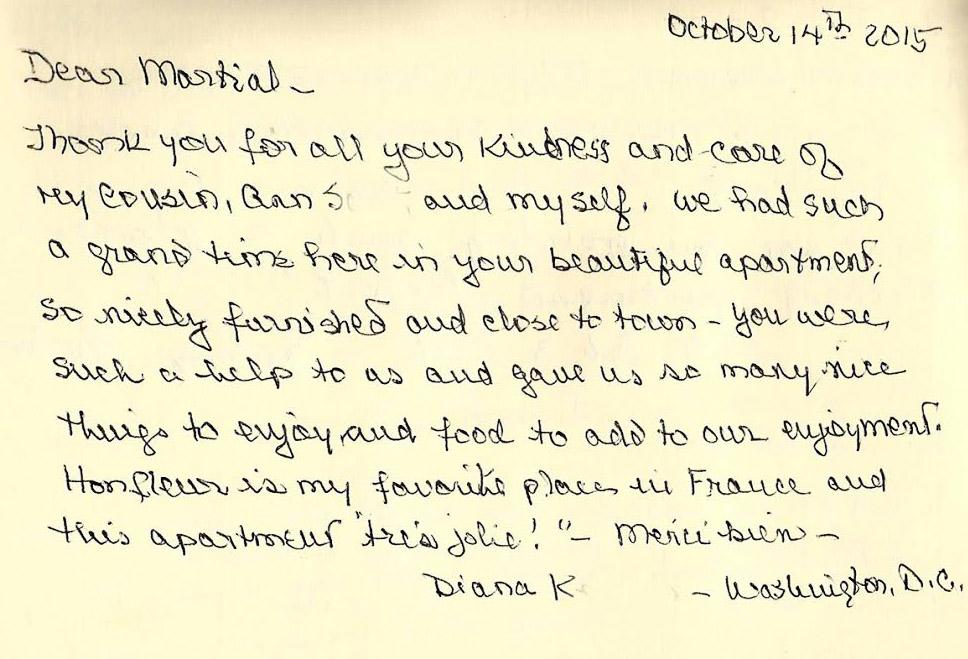 October 14th 2015
Dear Martial -
Thank you for all your kindness and care of
my cousin, Ann S and myself. We had such
a grand time here in your beautiful apartment,
so nicely furnished and close to town - you were
such a help to us and gave us so many nice
things to enjoy, and food to add to our enjoyment.
Honfleur is my favorite place in France and
this apartment "très jolie!" - Merci bien -
Diana K - Washington, D.C.